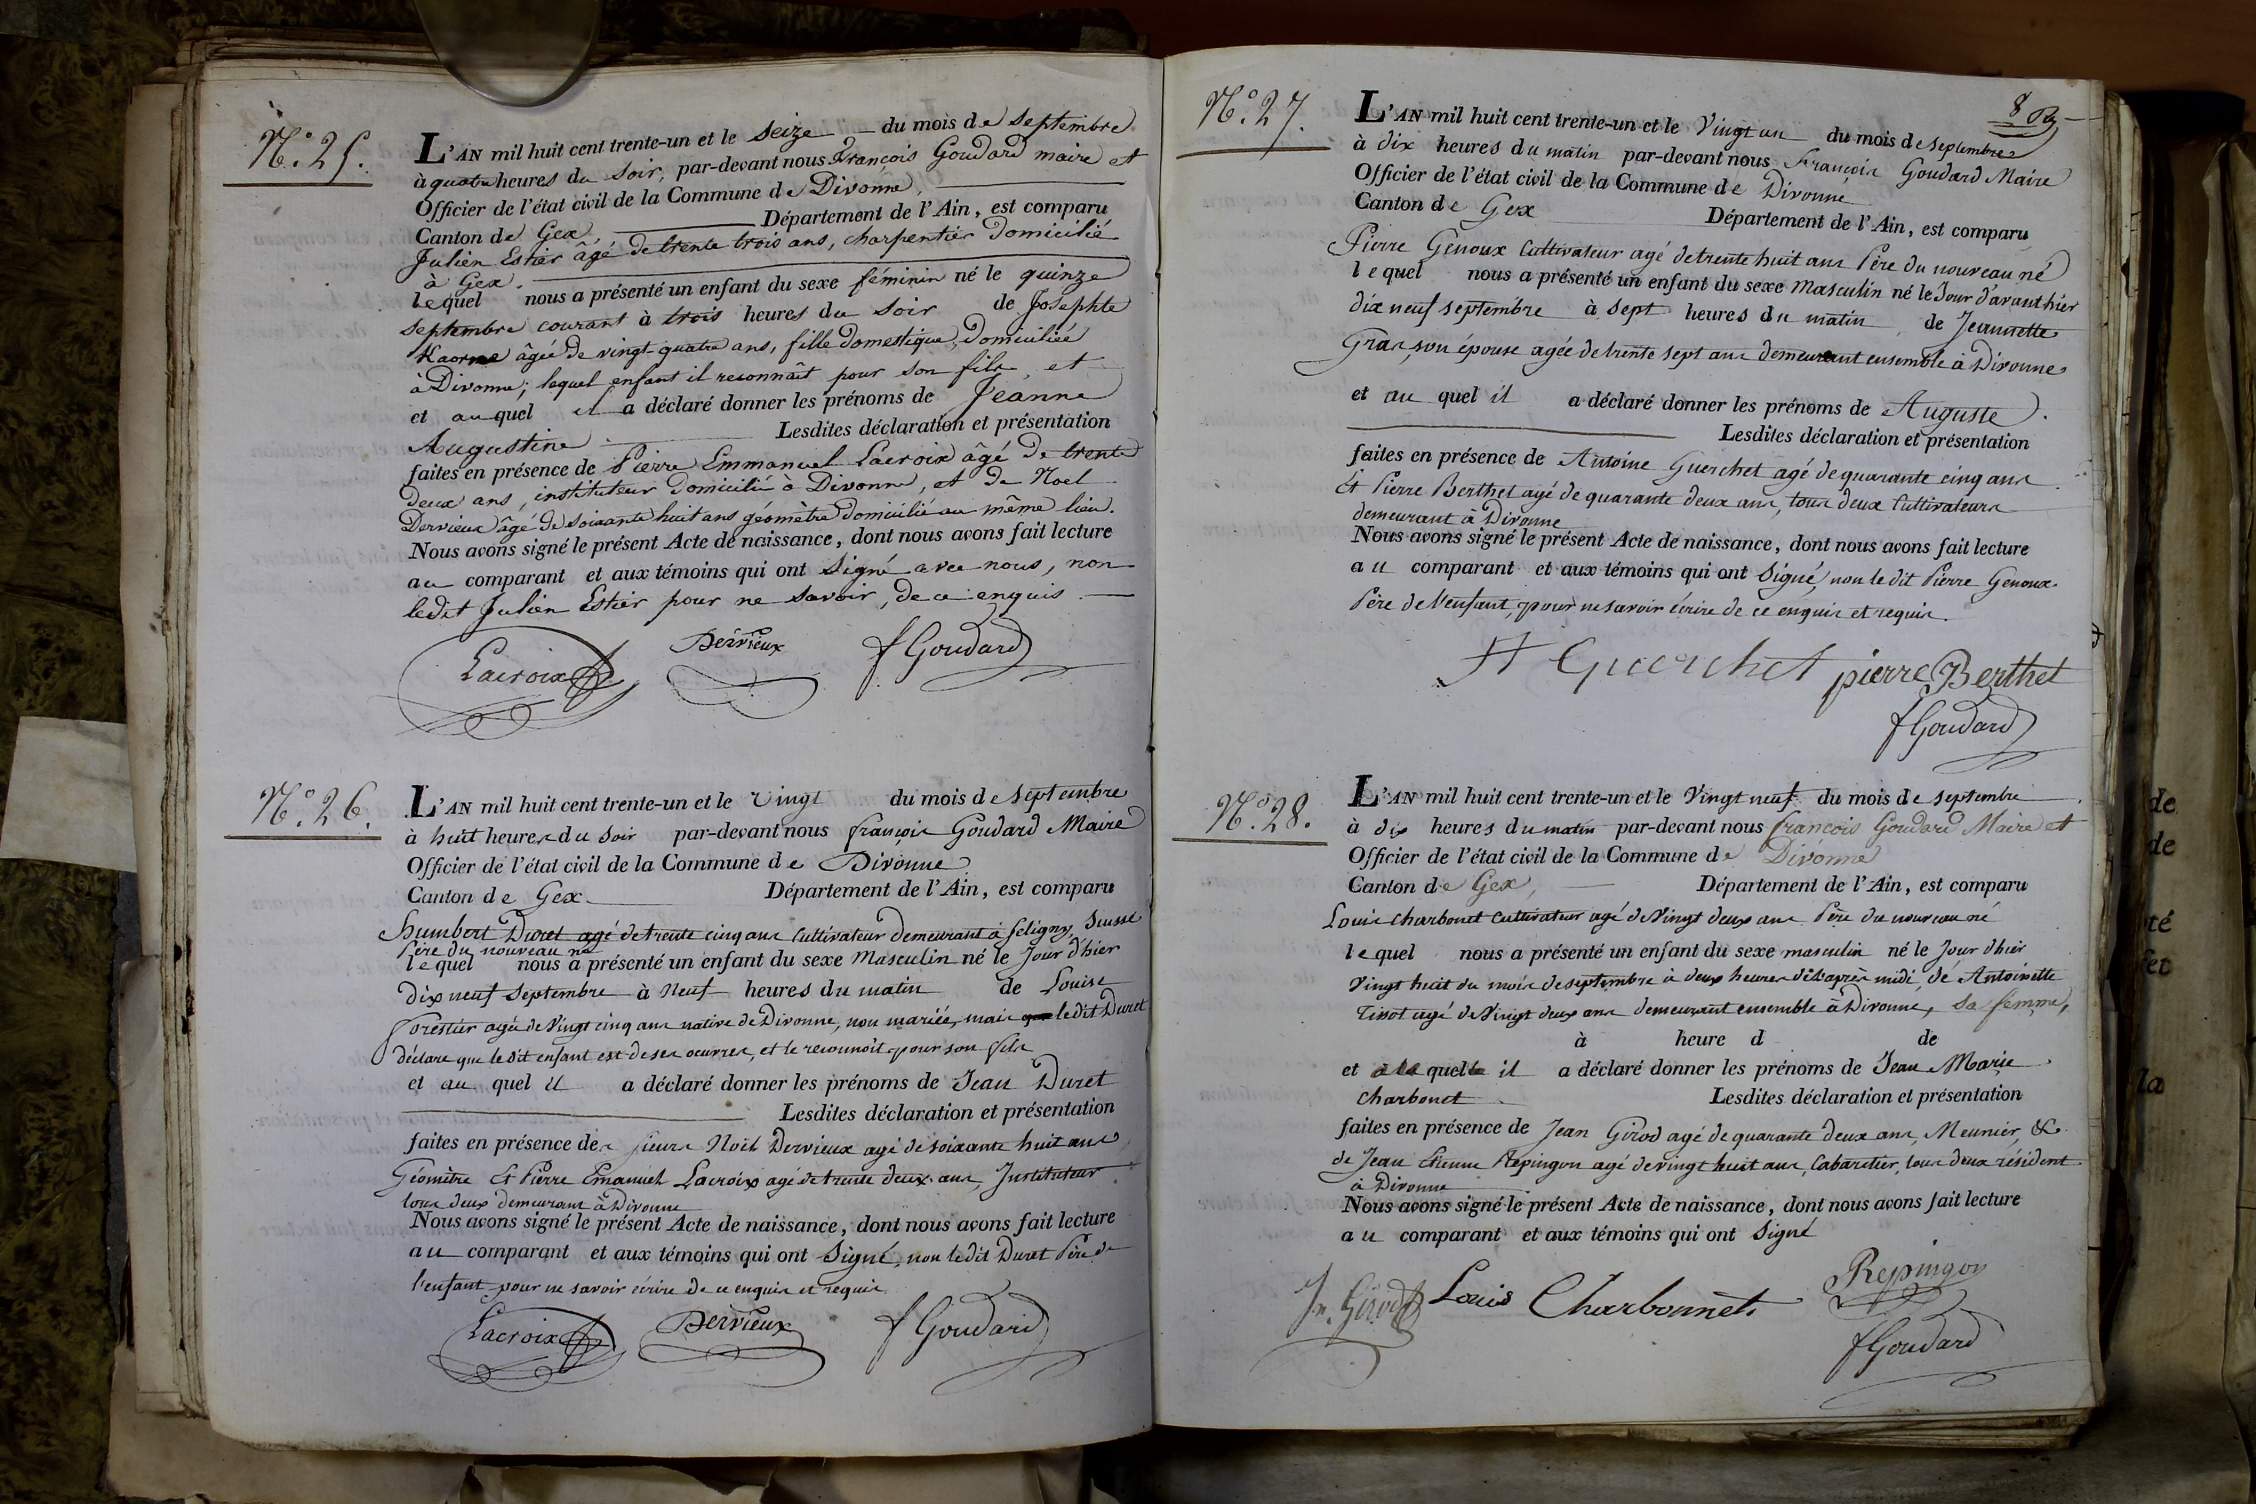 N.° 25.
L'AN mil huit cent trente-un et le seize du mois de septembre
à quatre heures du soir, par-devant nous François Goudard maire et
Officier de l'état civil de la Commune de Divonne,
Canton de Gex, Département de l'Ain, est comparu
Julien Estier âgé de trente trois ans, charpentier domicilié
à Gex.
lequel nous a présenté un enfant du sexe féminin né le quinze
septembre courant à trois heures du soir de Josephte
âgée de vingt-quatre ans, fille domestique, domiciliée
à Divonne; lequel enfant il reconnaît pour son fils, et
et auquel il a déclaré donner les prénoms de Jeanne
Augustine Lesdites déclaration et présentation
faites en présence de Pierre Emmanuel Lacroix âgé de trente
deux ans, instituteur domicilié à Divonne, et de Noel
Dervieux âgé de soixante huit ans géomètre domicilié au même lieu.
Nous avons signé le présent Acte de naissance, dont nous avons fait lecture
au comparant et aux témoins qui ont signé avec nous, non
ledit Julien Estier pour ne savoir, de ce enquis.
Lacroix Dervieux f Goudard
N.° 26.
L'AN mil huit cent trente-un et le vingt du mois de septembre
à huit heures du soir par-devant nous françois Goudard Maire
Officier de l'état civil de la Commune de Divonne
Canton de Gex Département de l'Ain, est comparu
humbert Duret agé de trente cinq ans Cultivateur demeurant à feligny, Suisse
Père du nouveau né
lequel nous a présenté un enfant du sexe Masculin né le Jour d'hier
dix neuf septembre à Neuf heures du matin de Louise
forestier agée de Vingt cinq ans native de Divonne, non mariée, mais le dit Duret
déclare que le dit enfant est de ses oeuvres, et le reconnoit pour son fils
et au quel il a déclaré donner les prénoms de Jean Duret
Lesdites déclaration et présentation
faites en présence des sieurs Noël Dervieux agé de soixante huit ans
Géomètre Et Pierre Emanuel Lacroix agé de trente deux ans, Instituteur
tous deux demeurant à Divonne
Nous avons signé le présent Acte de naissance, dont nous avons fait lecture
au comparant et aux témoins qui ont Signé, non le dit Duret Père de
l'enfant pour ne savoir écrire de ce enquis et requis
Lacroix Dervieux f Goudard
8
N.° 27.
L'AN mil huit cent trente-un et le Vingt un du mois de septembre
à dix heures du matin par-devant nous François Goudard Maire
Officier de l'état civil de la Commune de Divonne
Canton de Gex Département de l'Ain, est comparu
Pierre Genoux Cultivateur agé de trente huit ans Père du nouveau né
lequel nous a présenté un enfant du sexe Masculin né le Jour d'avant hier
dix neuf septembre à sept heures du matin de Jeannette
Gras, son épouse agée de trente sept ans demeurant ensemble à Divonne
et au quel il a déclaré donner les prénoms de Auguste.
Lesdites déclaration et présentation
faites en présence de Antoine Guerchet agé de quarante cinq ans
Et Pierre Berthet agé de quarante deux ans, tous deux Cultivateurs
demeurant à Divonne
Nous avons signé le présent Acte de naissance, dont nous avons fait lecture
au comparant et aux témoins qui ont Signé, non le dit Pierre Genoux
Père de l'enfant, pour ne savoir écrire de ce enquis et requis.
A Guerchet pierre Berthet
f Goudard
N.° 28.
L'AN mil huit cent trente-un et le Vingt neuf du mois de septembre
à dix heures du matin par-devant nous françois Goudard Maire et
Officier de l'état civil de la Commune de Divonne
Canton de Gex, Département de l'Ain, est comparu
Louis Charbonet Cultivateur agé de Vingt deux ans Père du nouveau né
lequel nous a présenté un enfant du sexe masculin né le Jour d'hier
Vingt huit du mois de septembre à deux heures de l'après midi, de Antoinette
Tissot agé de Vingt deux ans demeurant ensemble à Divonne, sa femme,
à heure d de
et quel il a déclaré donner les prénoms de Jean Marie
Charbonet Lesdites déclaration et présentation
faites en présence de Jean Girod agé de quarante deux ans, Meunier, &
de Jean Etienne Repingon agé de vingt huit ans, Cabaretier, tous deux résident
à Divonne
Nous avons signé le présent Acte de naissance, dont nous avons fait lecture
au comparant et aux témoins qui ont Signé
Jn. Girod Louis Charbonnet Repingon
f Goudard
de
de
té
la